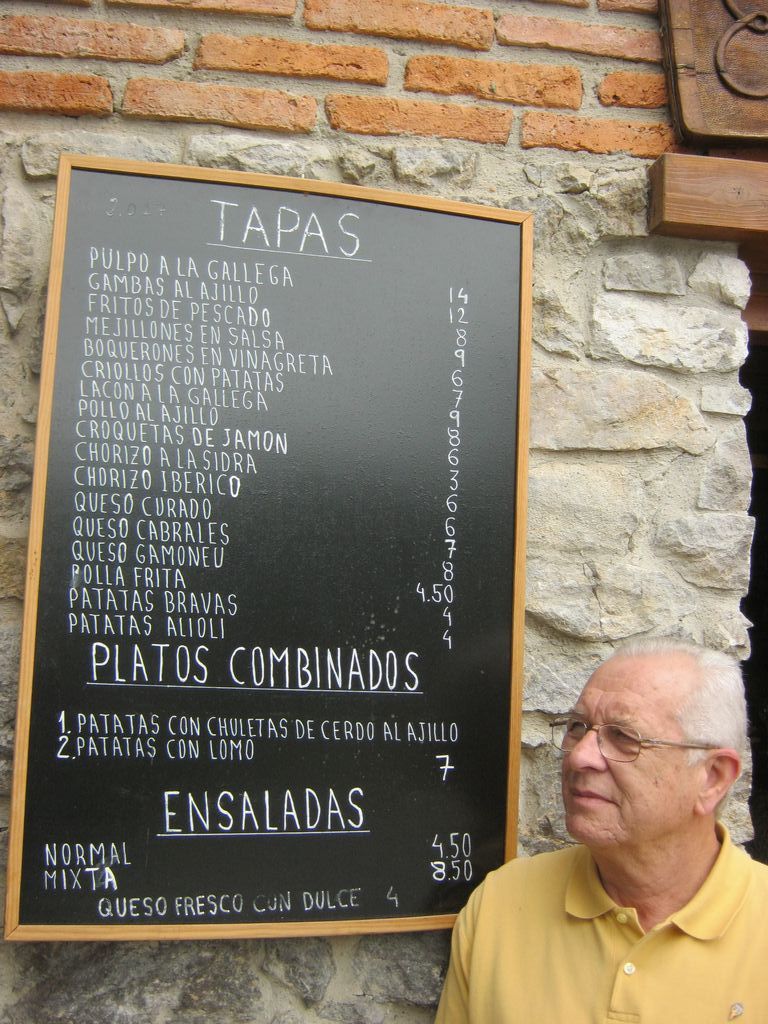 TAPAS
PULPO A LA GALLEGA 14
GAMBAS AL AJILLO 12
FRITOS DE PESCADO 8
MEJILLONES EN SALSA 9
BOQUERONES EN VINAGRETA 6
CRIOLLOS CON PATATAS 7
LACON A LA GALLEGA 9
POLLO AL AJILLO 8
CROQUETAS DE JAMON 6
CHORIZO A LA SIDRA 3
CHORIZO IBERICO 6
QUESO CURADO 6
QUESO CABRALES 7
QUESO GAMONEU 8
POLLA FRITA 4.50
PATATAS BRAVAS 4
PATATAS ALIOLI 4
PLATOS COMBINADOS
1. PATATAS CON CHULETAS DE CERDO AL AJILLO
2. PATATAS CON LOMO 7
ENSALADAS
NORMAL 4.50
MIXTA 8.50
QUESO FRESCO CON DULCE 4